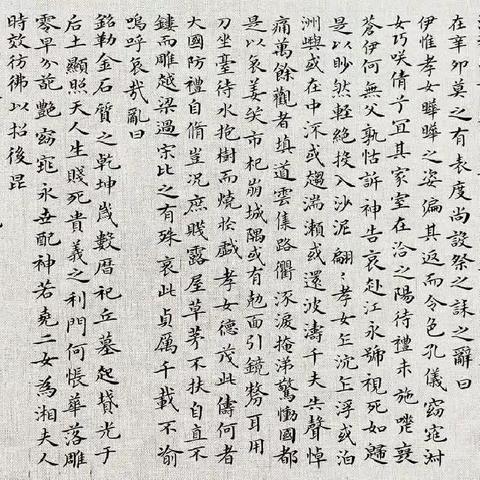 在辛卯莫之有表度尚設祭之誄之辭曰
伊惟孝女曄曄之姿偏其返而令色孔儀窈窕淑
女巧咲倩兮宜其家室在洽之陽待禮未施嗟喪
蒼伊何無父孰怙訴神告哀赴江永號視死如歸
是以眇然輕絕投入沙泥翩〻孝女乍沉乍浮或泊
洲嶼或在中流或趨湍瀨或還波濤千夫失聲悼
痛萬餘觀者填道雲集路衢涿淚掩涕驚慟國都
是以哀姜哭市杞崩城隅或有勀面引鏡剺耳用
刀坐臺待水抱樹而燒於戲孝女德茂此儔何者
大國防禮自脩豈況庶賤露屋草茅不扶自直不
鏤而雕越梁過宋比之有殊哀此貞厲千載不渝
嗚呼哀哉亂曰
銘勒金石質之乾坤歲數曆祀丘墓起墳光于
后土顯照天人生賤死貴義之利門何悵華落雕
零早分葩艷窈窕永世配神若堯二女為湘夫人
時效彷彿以招後昆